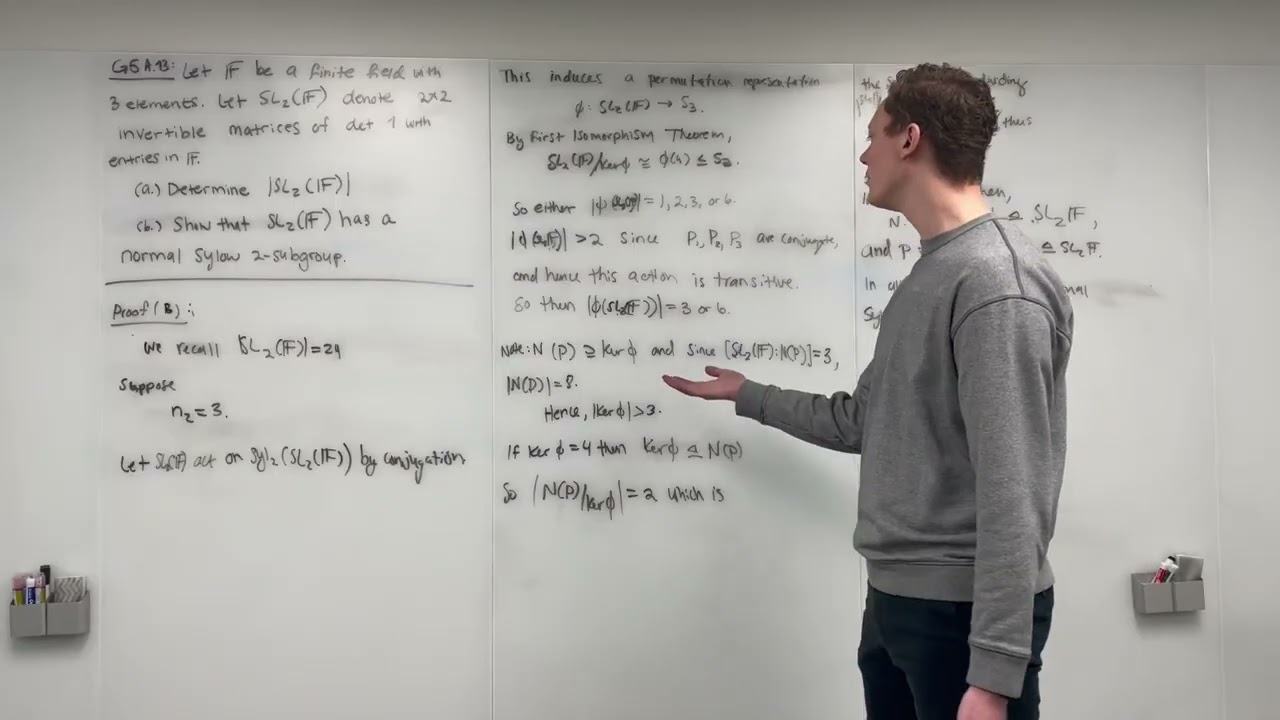 G5A.13: Let 𝔽 be a finite field with
3 elements. Let SL₂(𝔽) denote 2x2
invertible matrices of det 1 with
entries in 𝔽.
(a.) Determine |SL₂(𝔽)|
(b.) Show that SL₂(𝔽) has a
normal Sylow 2-subgroup.
Proof (B):
We recall |SL₂(𝔽)|=24
Suppose
n₂=3.
Let SL₂(𝔽) act on Syl₂(SL₂(𝔽)) by conjugation.
This induces a permutation representation
ϕ: SL₂(𝔽) → S₃.
By First Isomorphism Theorem,
SL₂(𝔽)/kerϕ ≅ ϕ(G) ≤ S₃.
So either |ϕ(SL₂(𝔽))|= 1, 2, 3, or 6.
|ϕ(SL₂(𝔽))| >2 since P₁, P₂, P₃ are conjugate,
and hence this action is transitive.
So then |ϕ(SL₂(𝔽))| = 3 or 6.
Note: N(P) ⊇ Kerϕ and since [SL₂(𝔽):N(P)]=3,
|N(P)|=8.
Hence, |Kerϕ|>3.
If Ker ϕ=4 then Kerϕ ⊴ N(P)
So |N(P)/Kerϕ|=2 which is
the
thus
N
⊴ SL₂𝔽,
and P
⊴ SL₂𝔽.
In